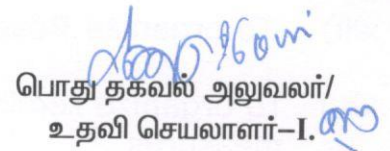 பொது தகவல் அலுவலர்/
உதவி செயலாளர்–I.